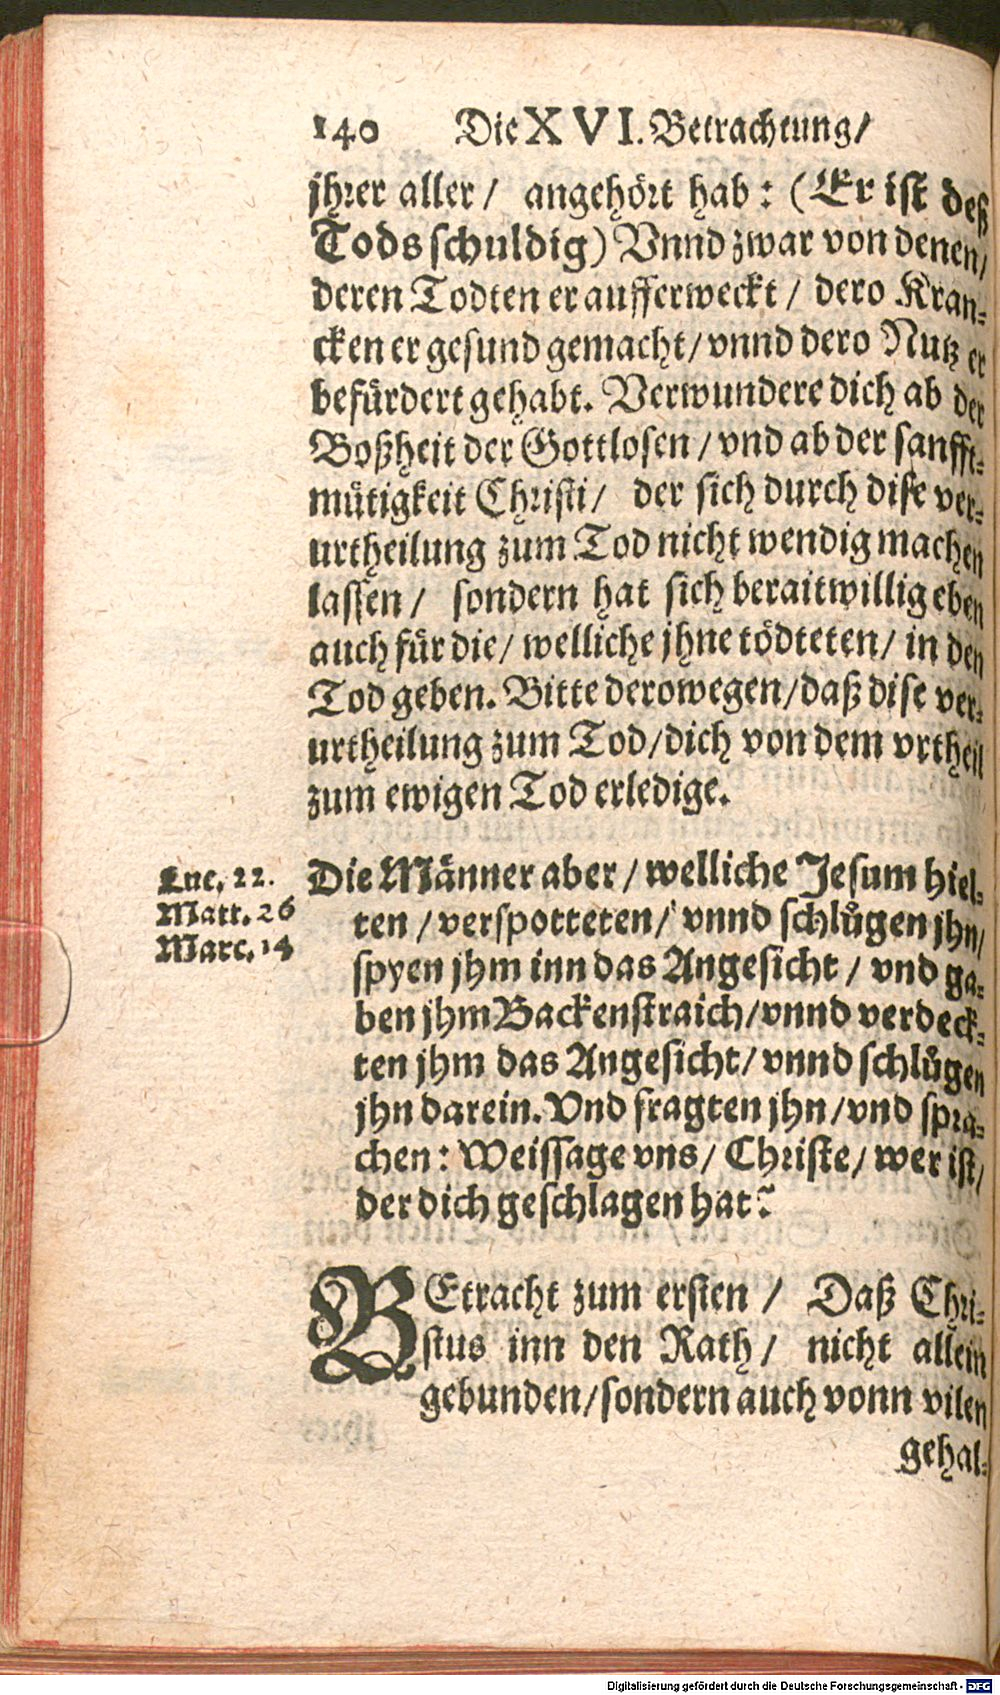 140 Die XVI. Betrachtung/
jhrer aller/ angehört hab: (Er ist deß
Tods schuldig) Vnnd zwar von denen/
deren Todten er aufferweckt/ dero Kran-
cken er gesund gemacht/ vnnd dero Nutz er
befürdert gehabt. Verwundere dich ab der
Boßheit der Gottlosen/ vnd ab der sanfft-
mütigkeit Christi/ der sich durch dise ver-
urtheilung zum Tod nicht wendig machen
lassen/ sondern hat sich beraitwillig eben
auch für die/ welliche jhne tödteten/ in den
Tod geben. Bitte derowegen/ daß dise ver-
urtheilung zum Tod/ dich von dem vrtheil
zum ewigen Tod erledige.
Luc. 22.
Matt. 26
Marc. 14
Die Männer aber/ welliche Jesum hiel-
ten/ verspotteten/ vnnd schlůgen jhn/
spyen jhm inn das Angesicht/ vnd ga-
ben jhm Backenstraich/ vnnd verdeck-
ten jhm das Angesicht/ vnnd schlůgen
jhn darein. Vnd fragten jhn/ vnd spra-
chen: Weissage vns/ Christe/ wer ist/
der dich geschlagen hat?
BEtracht zum ersten/ Daß Chri-
stus inn den Rath/ nicht allein
gebunden/ sondern auch vonn vilen
gehal-
Digitalisierung gefördert durch die Deutsche Forschungsgemeinschaft - DFG